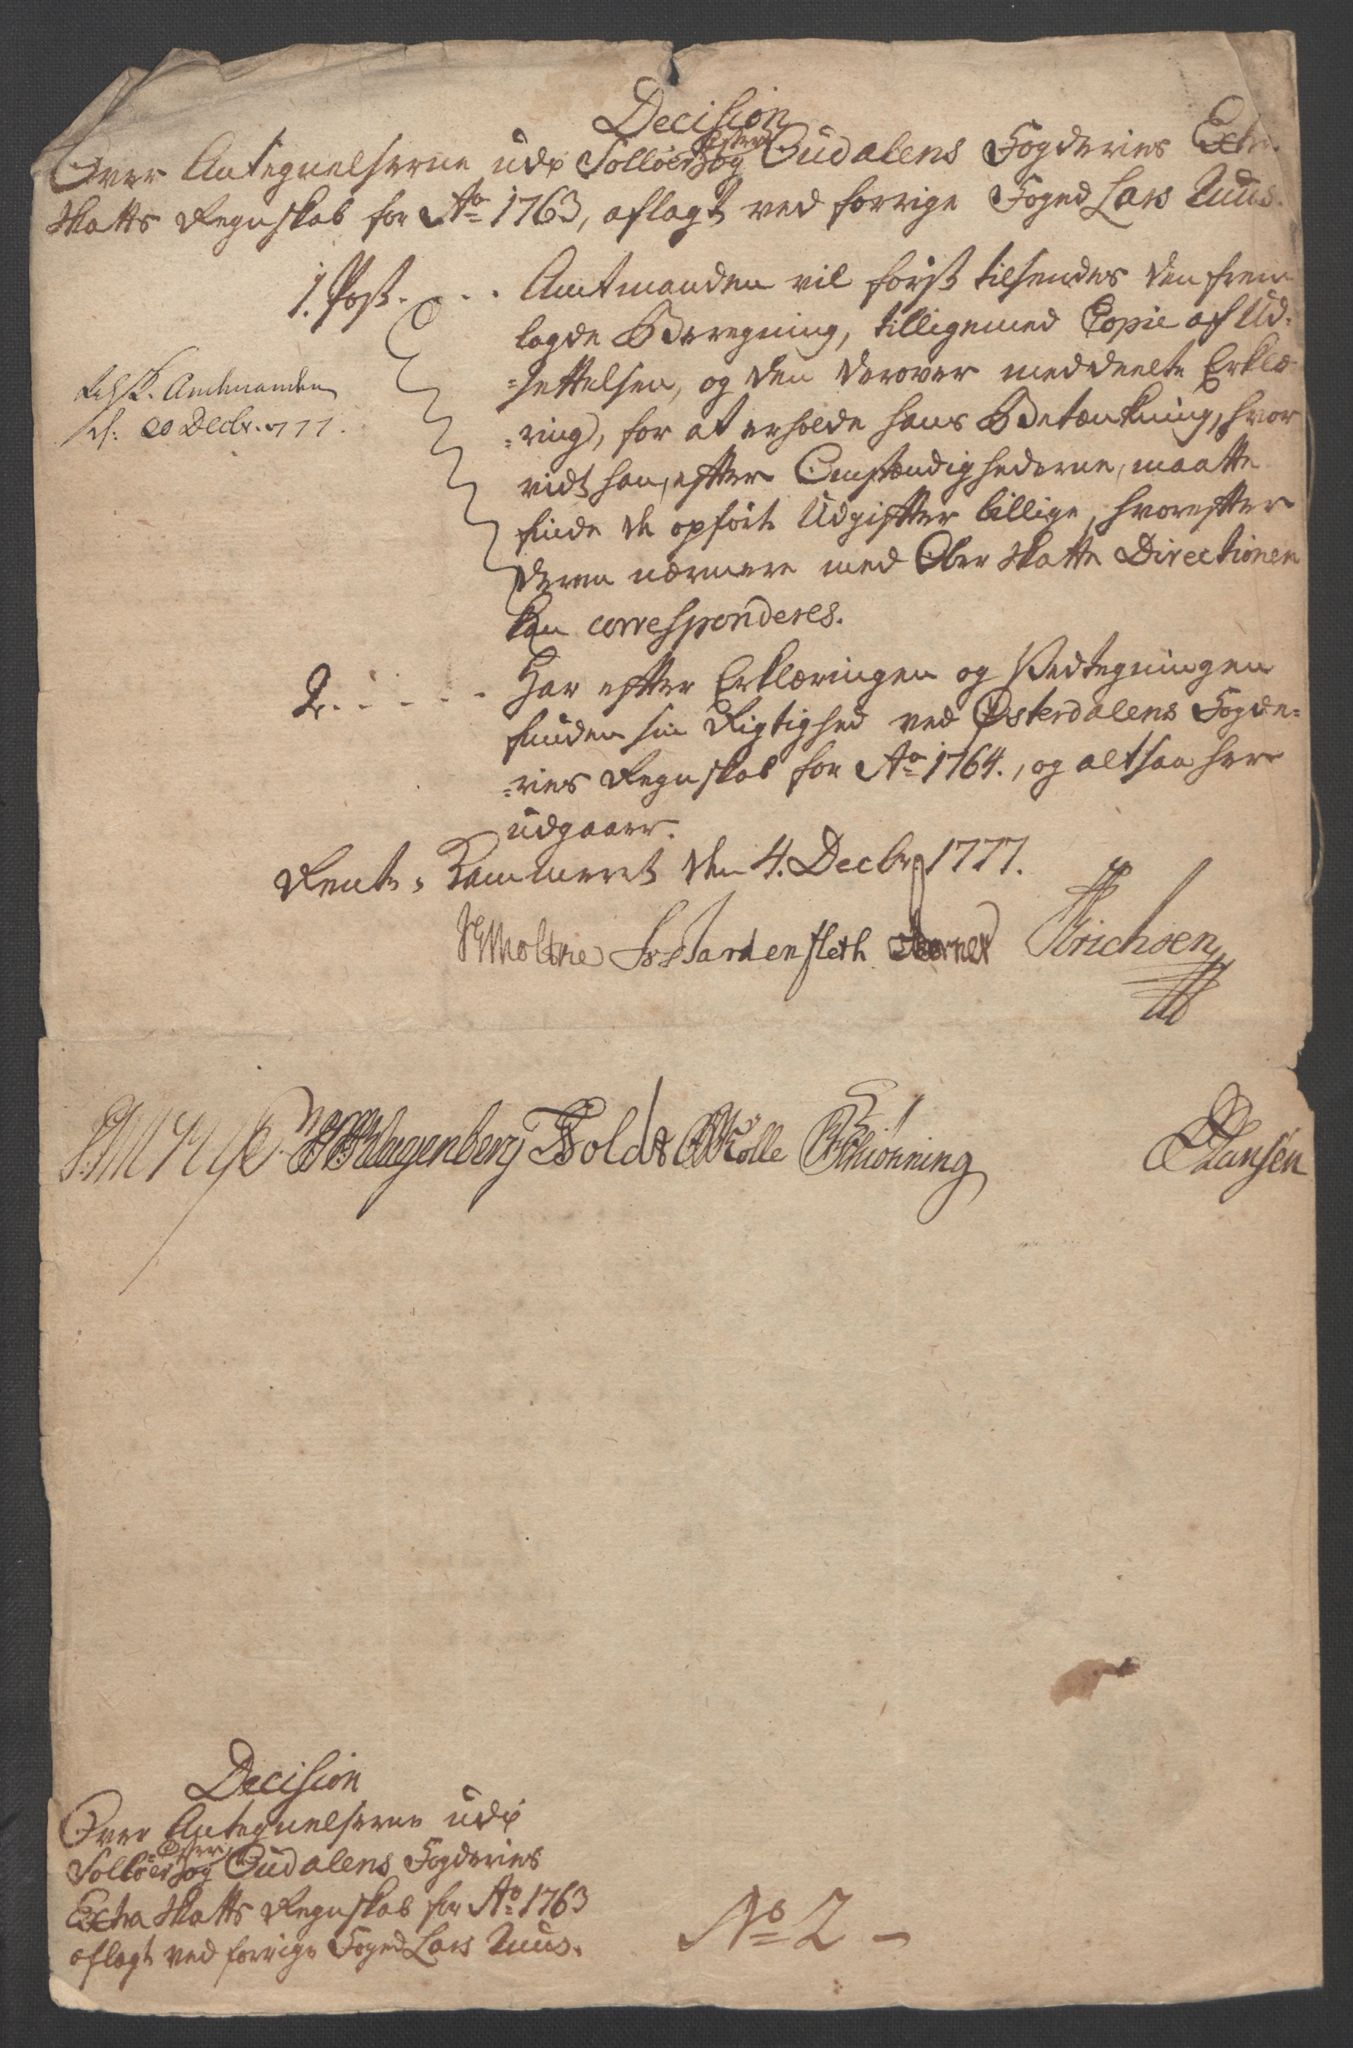 Decision
Over Antegnelserne udi Solløers og Øster Oudalens Fogderies Extra
Skatts Regnskab for Ao 1763, aflagt ved forrige Foged Lars Juus.
1. Post. . . . Amtmanden vil først tilsendes den frem
lagde Beregning, tilligemed Copie af Ud-
-settelsen, og den derover meddeelte Erklæ-
-ring, for at erholde hans Betænkning, hvor
vidt han, efter Omstændighederne, maatte
finde de opførte Udgifter billige, hvorefter
derom nærmere med Ober Skatte Directionen
kan corresponderes.
Amtmanden
20 Decbr. 777.
2. . . . . . Har efter Erklæringen og Paategningen
funden sin Rigtighed ved Østerdalens Fogde-
-ries Regnskab for Ao 1764., og altsaa her
udgaaer.
Rente-Kammeret den 4. Decbr 1777.
Moltke Wardenfleth Berner Erichsen
Klagenberg Holdt Kølle Schiønning Hansen
Decision
Over Antegnelserne udi
Solløers og Øster Oudalens Fogderies
Extra Skatts Regnskab for Ao 1763
aflagt ved forrige Foged Lars Juus.
No 2 -